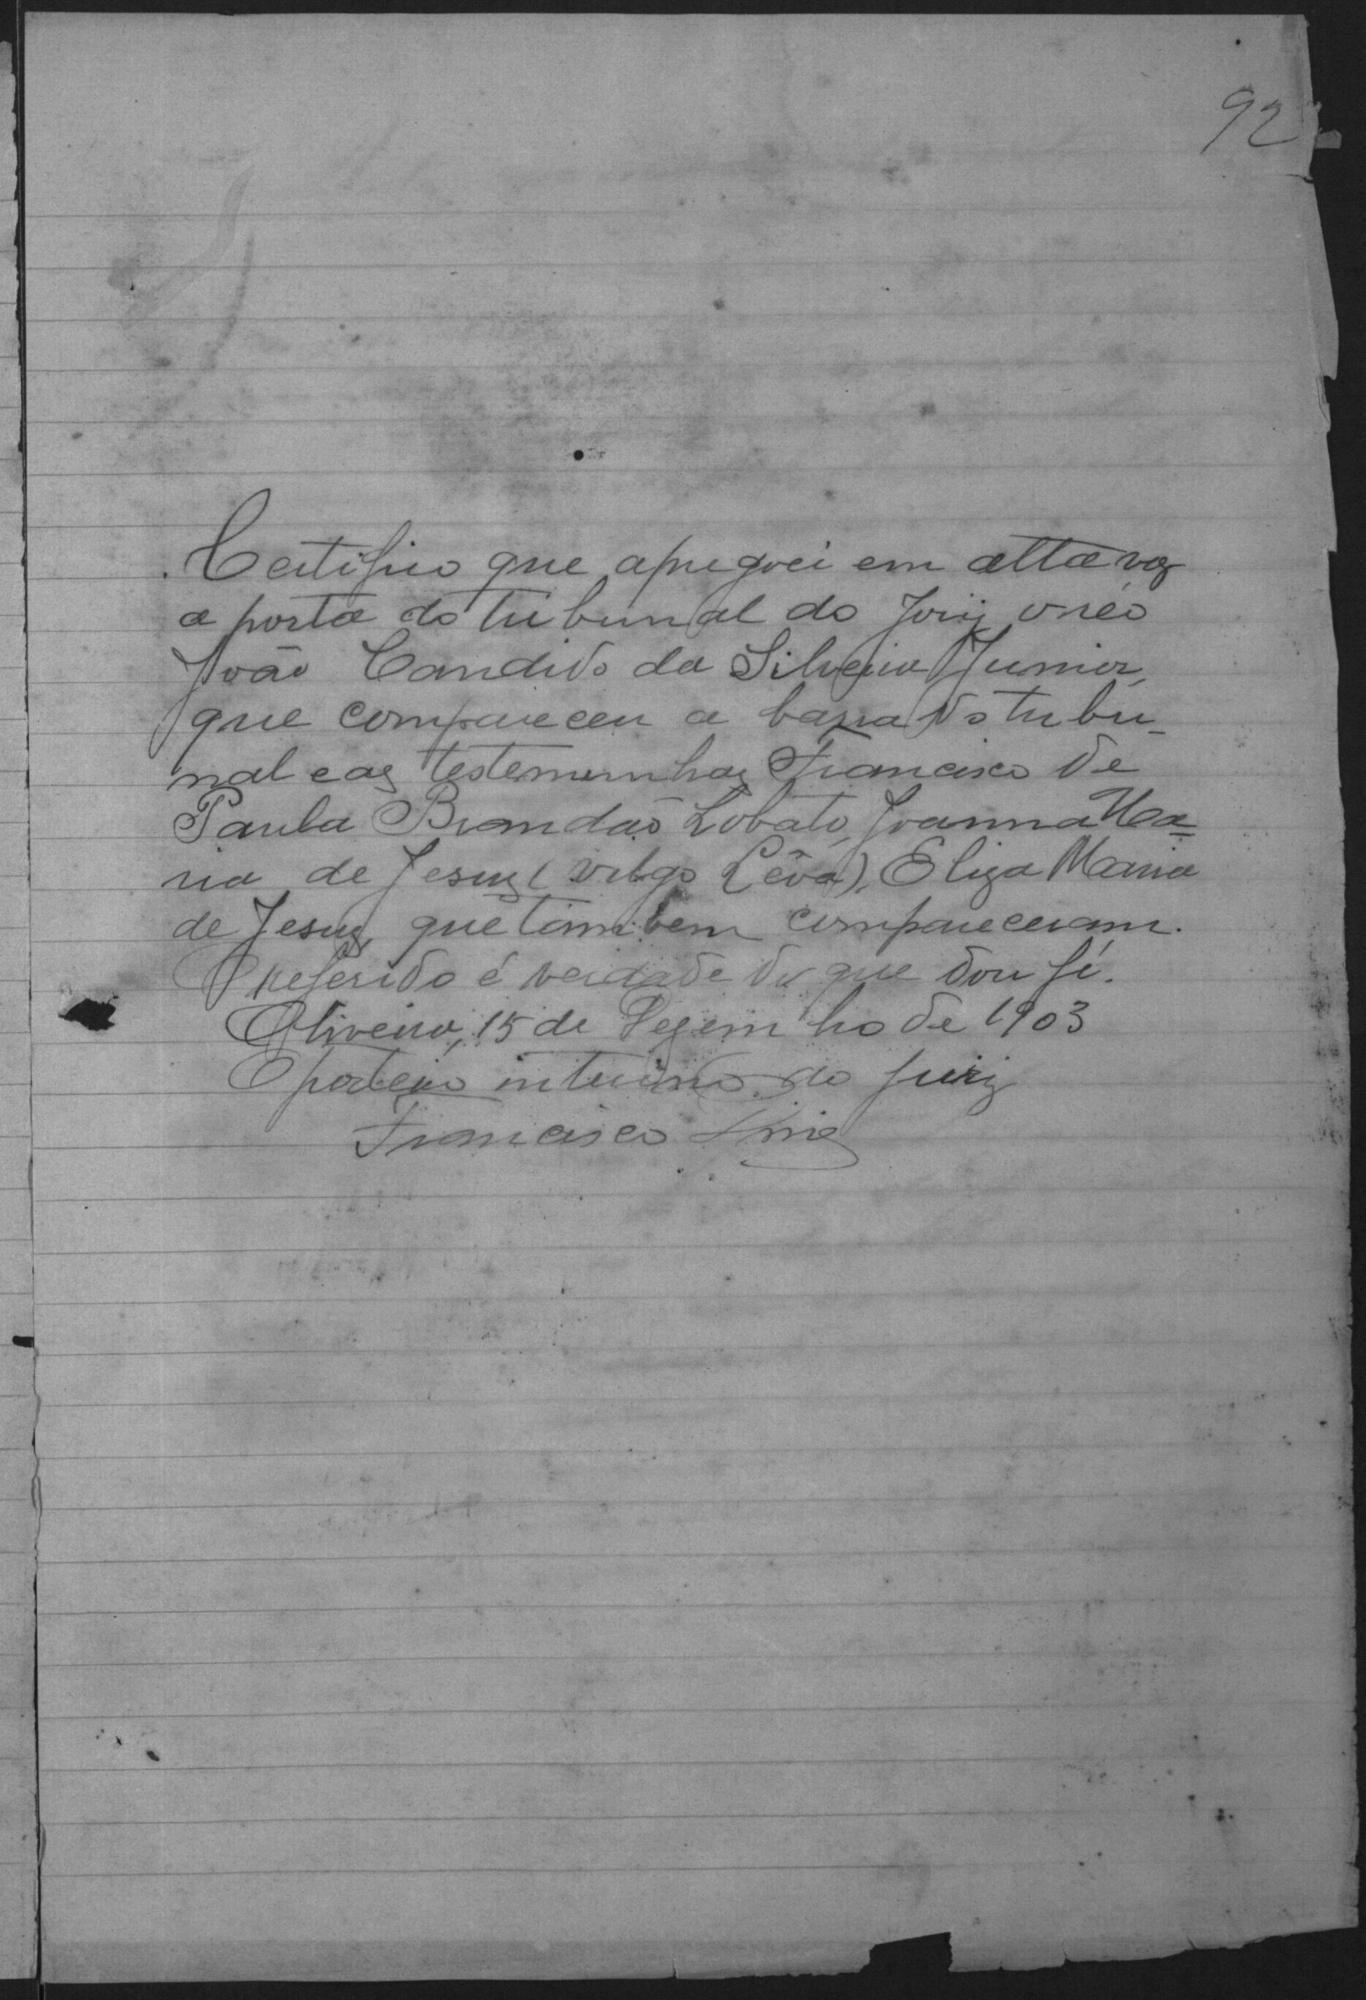 92
Certifico que apregoei em alta voz
a porta do tribunal do Jury o réo
João Candido da Silveira Junior,
que compareceu a barra do tribu-
nal e as testemunhas Francisco de
Paula Brandão Lobato, Joanna Ma-
ria de Jesus (vulgo Lêva), Eliza Maria
de Jesus, que tambem compareceram.
O referido é verdade do que dou fé.
Oliveira, 15 de Dezembro de 1903
O porteiro interino do jury
Francisco